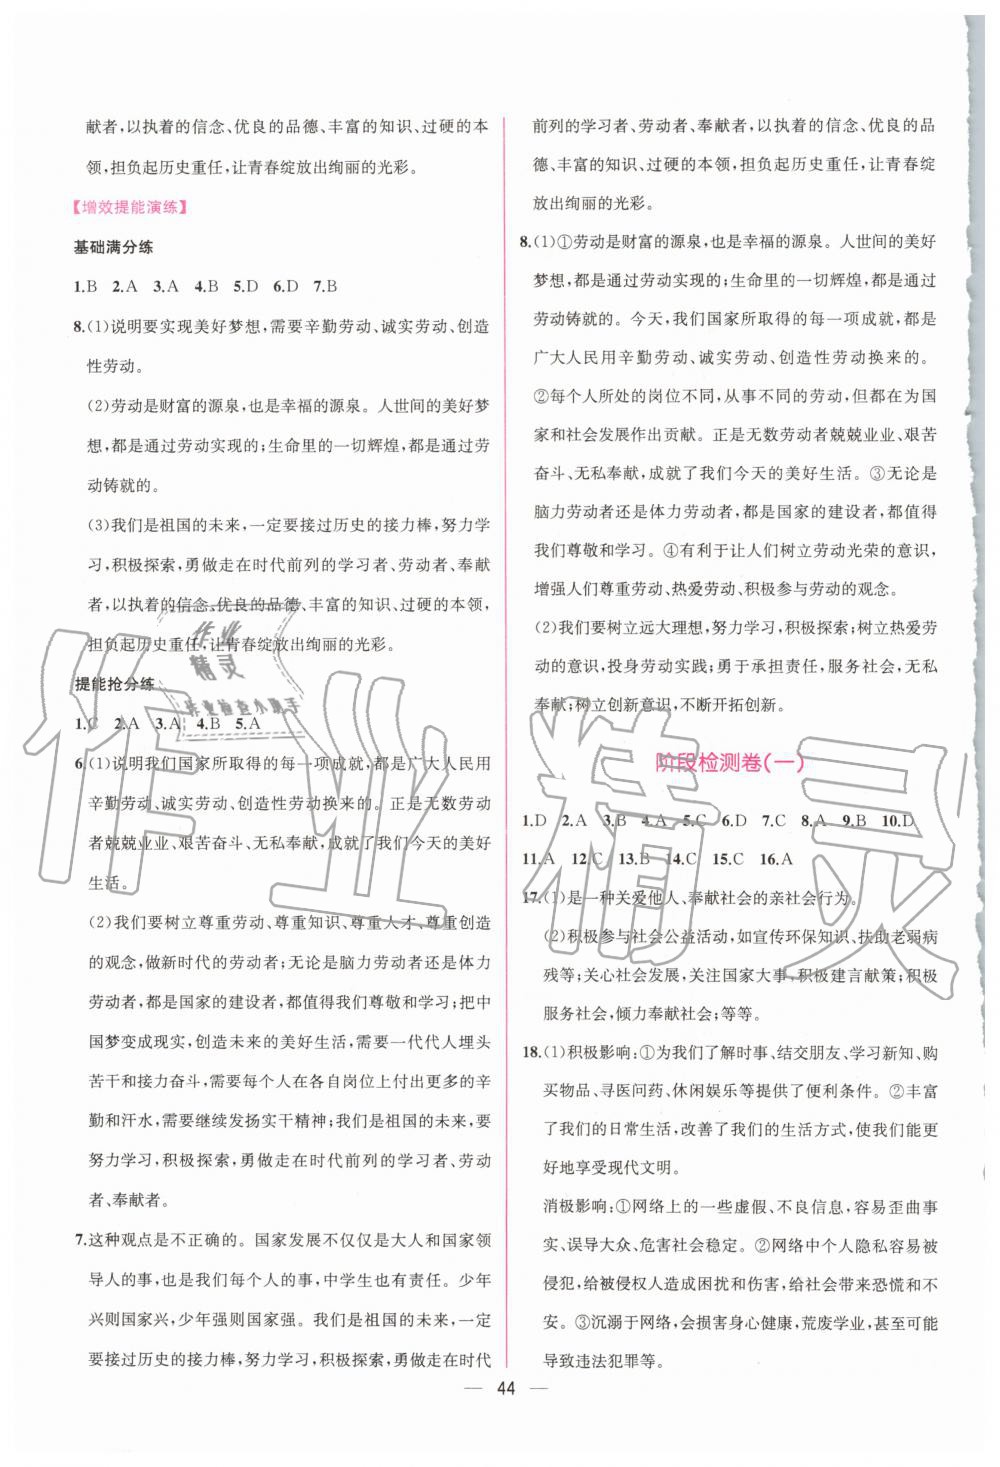 献者,以执着的信念、优良的品德、丰富的知识、过硬的本
领,担负起历史重任,让青春绽放出绚丽的光彩。
【增效提能演练】
基础满分练
1.B 2.A 3.A 4.B 5.D 6.D 7.B
8.(1)说明要实现美好梦想,需要辛勤劳动、诚实劳动、创造
性劳动。
(2)劳动是财富的源泉,也是幸福的源泉。人世间的美好梦
想,都是通过劳动实现的;生命里的一切辉煌,都是通过劳
动铸就的。
(3)我们是祖国的未来,一定要接过历史的接力棒,努力学
习,积极探索,勇做走在时代前列的学习者、劳动者、奉献
者,以执着的信念、优良的品德、丰富的知识、过硬的本领,
担负起历史重任,让青春绽放出绚丽的光彩。
提能抢分练
1.C 2.A 3.A 4.B 5.A
6.(1)说明我们国家所取得的每一项成就,都是广大人民用
辛勤劳动、诚实劳动、创造性劳动换来的。正是无数劳动
者兢兢业业、艰苦奋斗、无私奉献,成就了我们今天的美好
生活。
(2)我们要树立尊重劳动、尊重知识、尊重人才、尊重创造
的观念,做新时代的劳动者;无论是脑力劳动者还是体力
劳动者,都是国家的建设者,都值得我们尊敬和学习;把中
国梦变成现实,创造未来的美好生活,需要一代代人埋头
苦干和接力奋斗,需要每个人在各自岗位上付出更多的辛
勤和汗水,需要继续发扬实干精神;我们是祖国的未来,要
努力学习,积极探索,勇做走在时代前列的学习者、劳动
者、奉献者。
7.这种观点是不正确的。国家发展不仅仅是大人和国家领
导人的事,也是我们每个人的事,中学生也有责任。少年
兴则国家兴,少年强则国家强。我们是祖国的未来,一定
要接过历史的接力棒,努力学习,积极探索,勇做走在时代
前列的学习者、劳动者、奉献者,以执着的信念、优良的品
德、丰富的知识、过硬的本领,担负起历史重任,让青春绽
放出绚丽的光彩。
8.(1)①劳动是财富的源泉,也是幸福的源泉。人世间的美好
梦想,都是通过劳动实现的;生命里的一切辉煌,都是通过
劳动铸就的。今天,我们国家所取得的每一项成就,都是
广大人民用辛勤劳动、诚实劳动、创造性劳动换来的。
②每个人所处的岗位不同,从事不同的劳动,但都在为国
家和社会发展作出贡献。正是无数劳动者兢兢业业、艰苦
奋斗、无私奉献,成就了我们今天的美好生活。③无论是
脑力劳动者还是体力劳动者,都是国家的建设者,都值得
我们尊敬和学习。④有利于让人们树立劳动光荣的意识,
增强人们尊重劳动、热爱劳动、积极参与劳动的观念。
(2)我们要树立远大理想,努力学习,积极探索;树立热爱劳
动的意识,投身劳动实践;勇于承担责任,服务社会,无私
奉献;树立创新意识,不断开拓创新。
阶段检测卷(一)
1.D 2.A 3.B 4.A 5.C 6.D 7.C 8.A 9.B 10.D
11.A 12.C 13.B 14.C 15.C 16.A
17.(1)是一种关爱他人、奉献社会的亲社会行为。
(2)积极参与社会公益活动,如宣传环保知识、扶助老弱病
残等;关心社会发展,关注国家大事,积极建言献策;积极
服务社会,倾力奉献社会;等等。
18.(1)积极影响:①为我们了解时事、结交朋友、学习新知、购
买物品、寻医问药、休闲娱乐等提供了便利条件。②丰富
了我们的日常生活,改善了我们的生活方式,使我们能更
好地享受现代文明。
消极影响:①网络上的一些虚假、不良信息,容易歪曲事
实、误导大众、危害社会稳定。②网络中个人隐私容易被
侵犯,给被侵权人造成困扰和伤害,给社会带来恐慌和不
安。③沉溺于网络,会损害身心健康,荒废学业,甚至可能
导致违法犯罪等。
— 44 —
作业
精灵
作业检查小助手
作业精灵